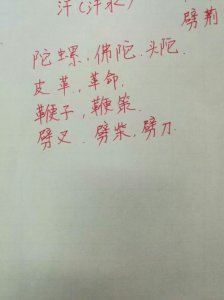 汗(汗水)
劈荆
陀螺,佛陀.头陀.
皮革,革命.
鞭子,鞭策.
劈叉.劈柴,劈刀.